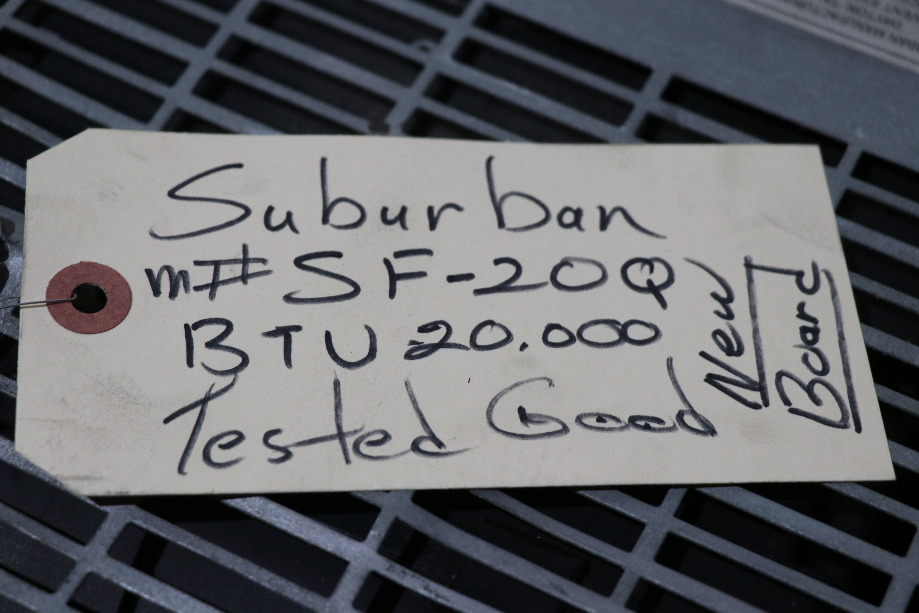 Suburban
m# SF-20Q
BTU 20.000
Tested Good
New
Board